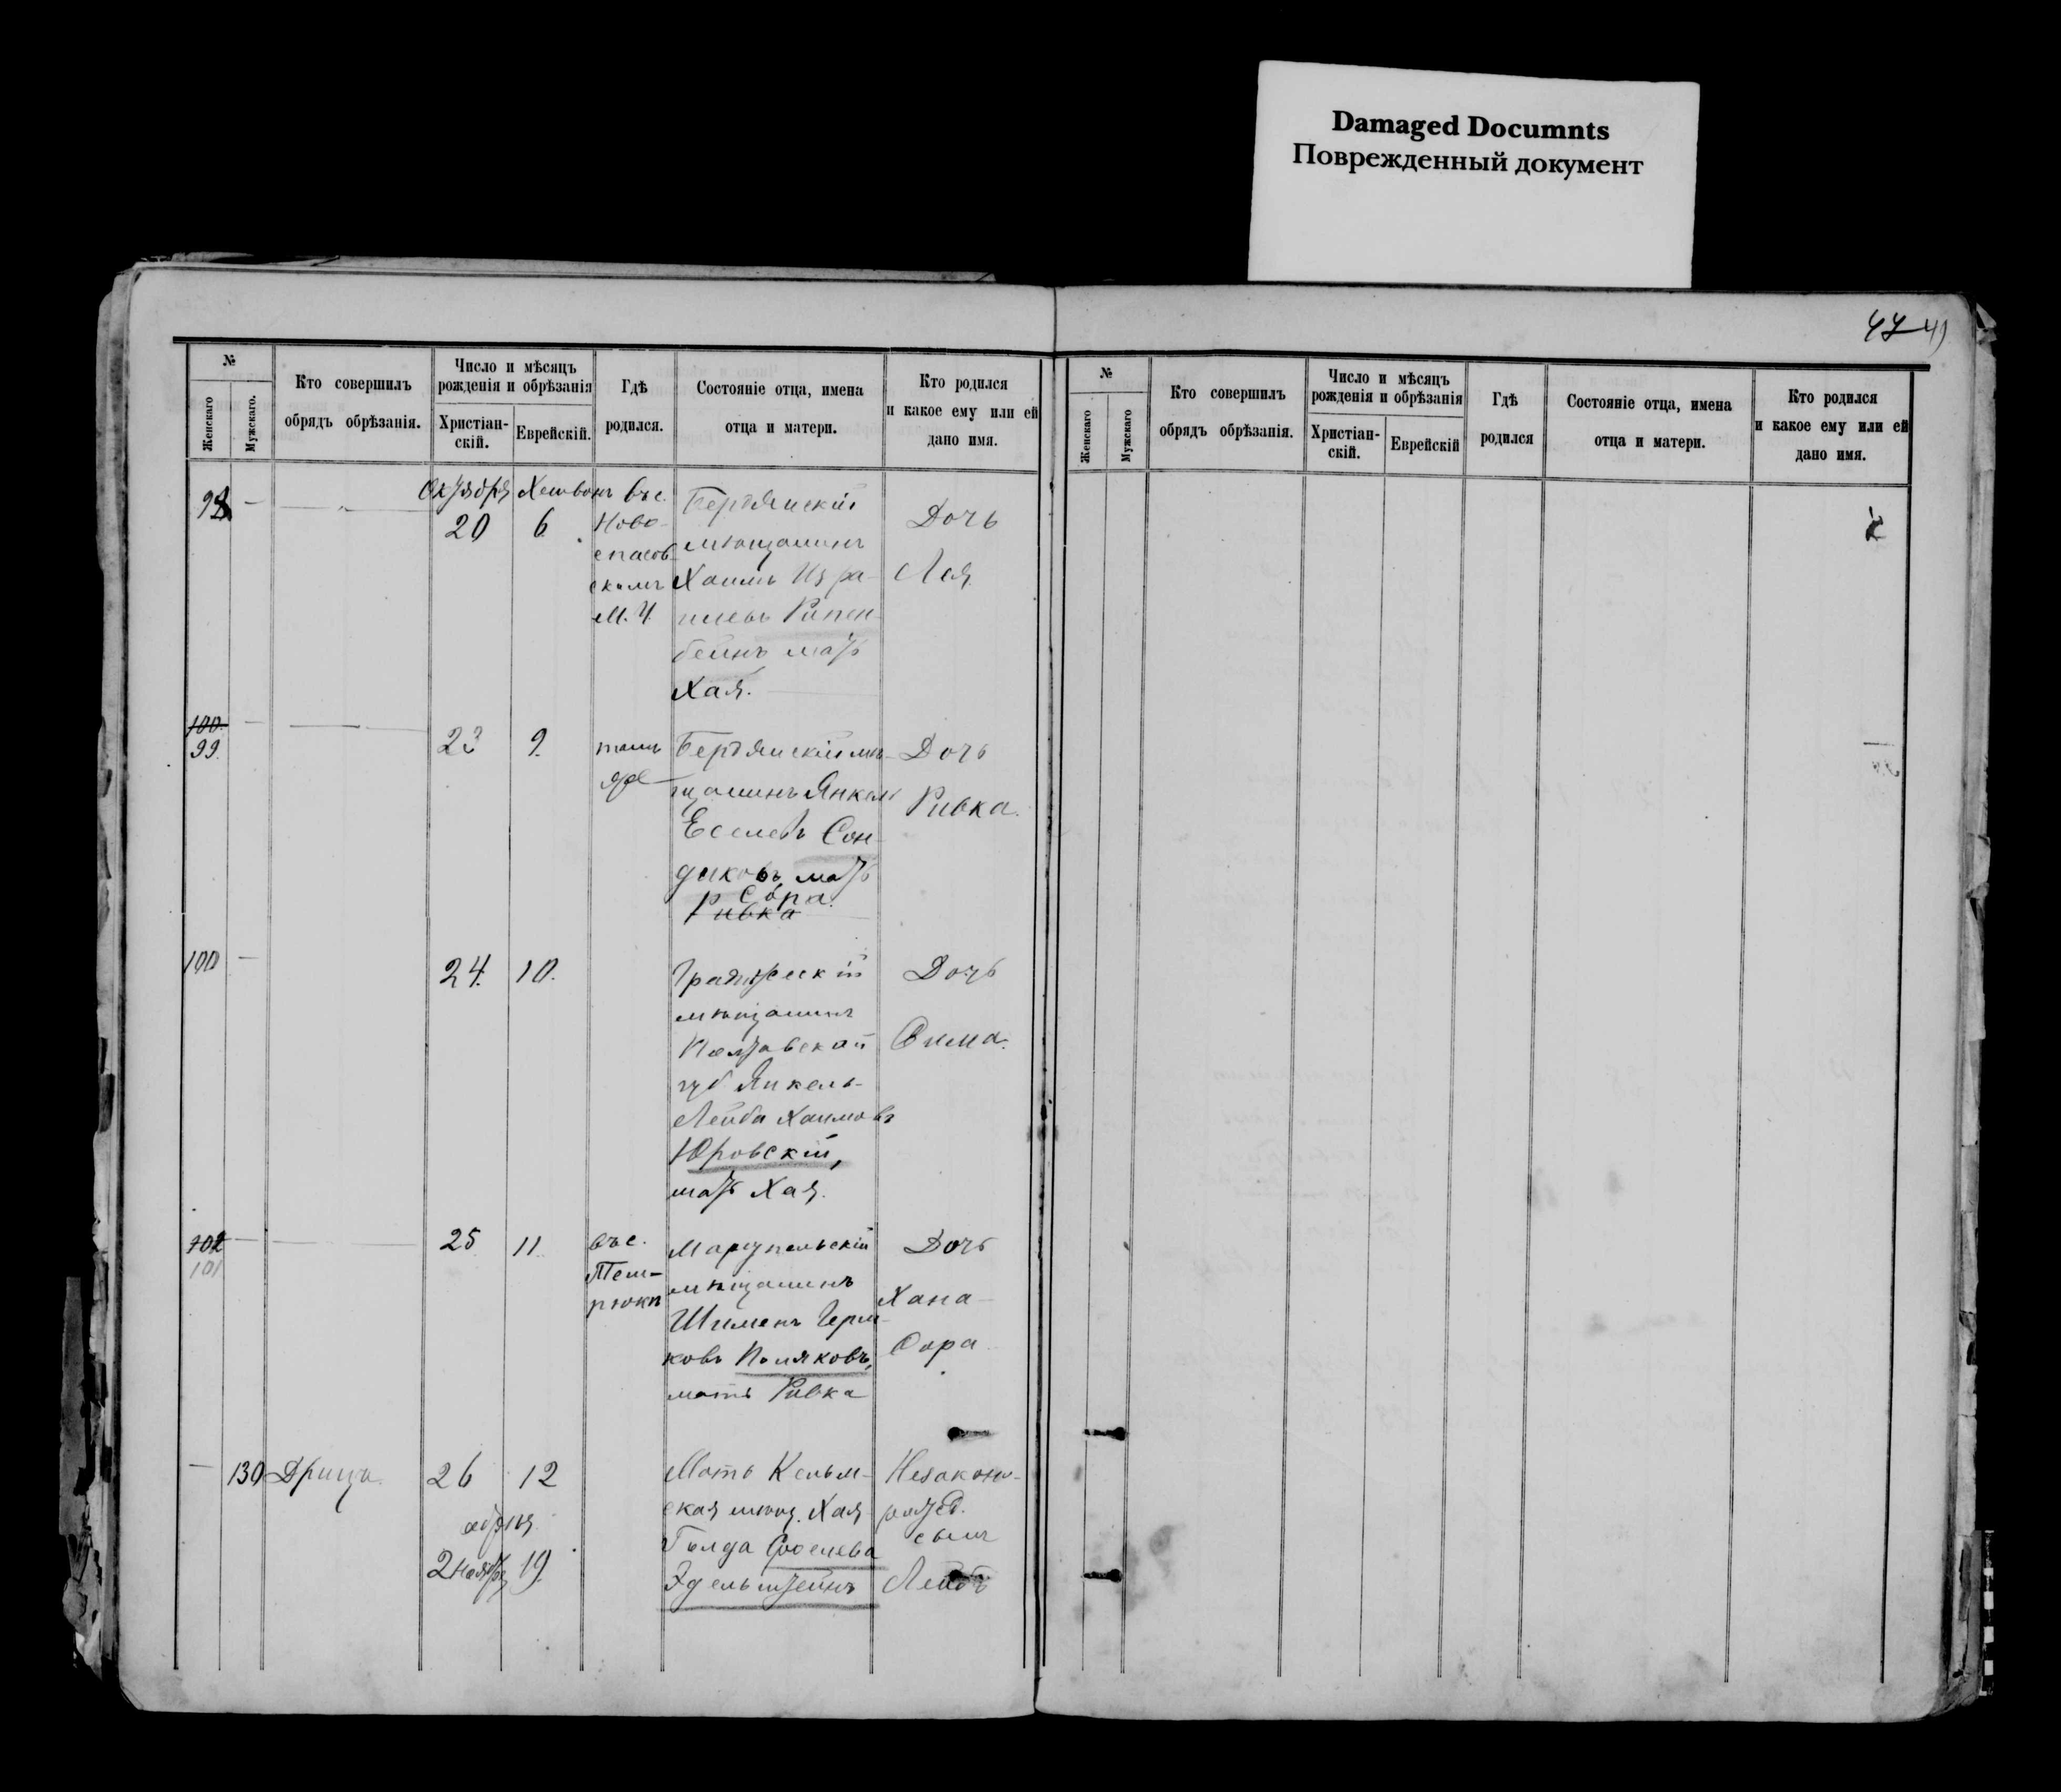 Damaged Documnts
Поврежденный документ
№
Женскаго
Мужскаго.
Кто совершилъ
обрядъ обрѣзанія.
Число и мѣсяцъ
рожденія и обрѣзанія
Христіан-
скій.
Еврейскій.
Гдѣ
родился.
Состояніе отца, имена
отца и матери.
Кто родился
и какое ему или ей
дано имя.
98 —
Октября
20
Хешванъ
6
въ с.
Ново-
спасов
скомъ
М. У.
Бердянскій
мѣщанинъ
Хаимъ Изра-
илевъ Рапен-
беинъ мать
Хая.
Дочь
Лея
100
99.
23
9.
тамъ
же
Бердянскій мѣ-
щанинъ Янкель
Есилевъ Сон-
диковъ, мать
Сора.
Ривка
Дочь
Ривка.
100 —
24.
10.
Градижскій
мѣщанинъ
Полтавской
губ Янкель-
Лейба Хаимовъ
Юровскій,
мать Хая.
Дочь
Сима.
102
101
25
11
въ с.
Тем-
рюкѣ
Маріупольскій
мѣщанинъ
Шименъ Герш-
ковъ Поляковъ,
мать Ривка
Дочь
Хана-
Сора
— 130
Дрица.
26
12
обрѣз.
2 Ноября
19.
Мать Кельм-
ская мѣщ. Хая
Голда
Эдельштейнъ
Незаконо-
рожд.
сынъ
Лейбъ
47 49
№
Женскаго
Мужскаго
Кто совершилъ
обрядъ обрѣзанія.
Число и мѣсяцъ
рожденія и обрѣзанія
Христіан-
скій.
Еврейскій
Гдѣ
родился
Состояніе отца, имена
отца и матери.
Кто родился
и какое ему или ей
дано имя.